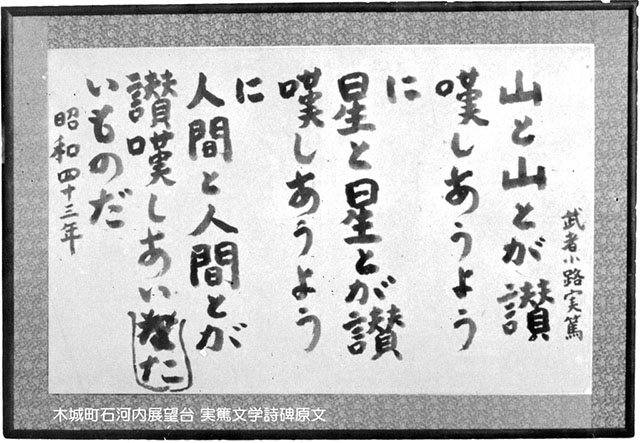 武者小路実篤
山と山とが讃
嘆しあうよう
に
星と星とが讃
嘆しあうよう
に
人間と人間とが
讃嘆しあいた
いものだ
昭和四十三年
木城町石河内展望台 実篤文学詩碑原文